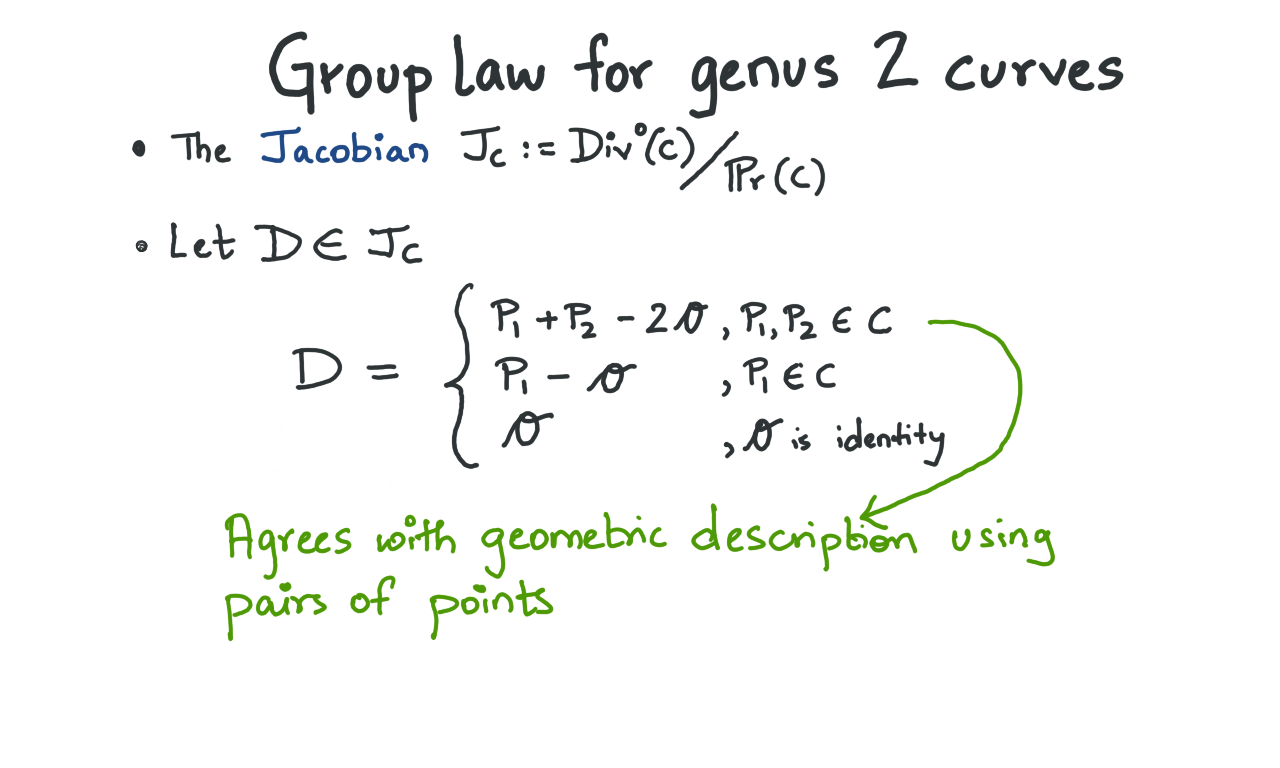 Group law for genus 2 curves
• The Jacobian J_C := Div⁰(C)/Pr(C)
• Let D ∈ J_C
D = { P₁ + P₂ - 2𝒪 , P₁, P₂ ∈ C
P₁ - 𝒪 , P₁ ∈ C
𝒪 , 𝒪 is identity
Agrees with geometric description using
pairs of points